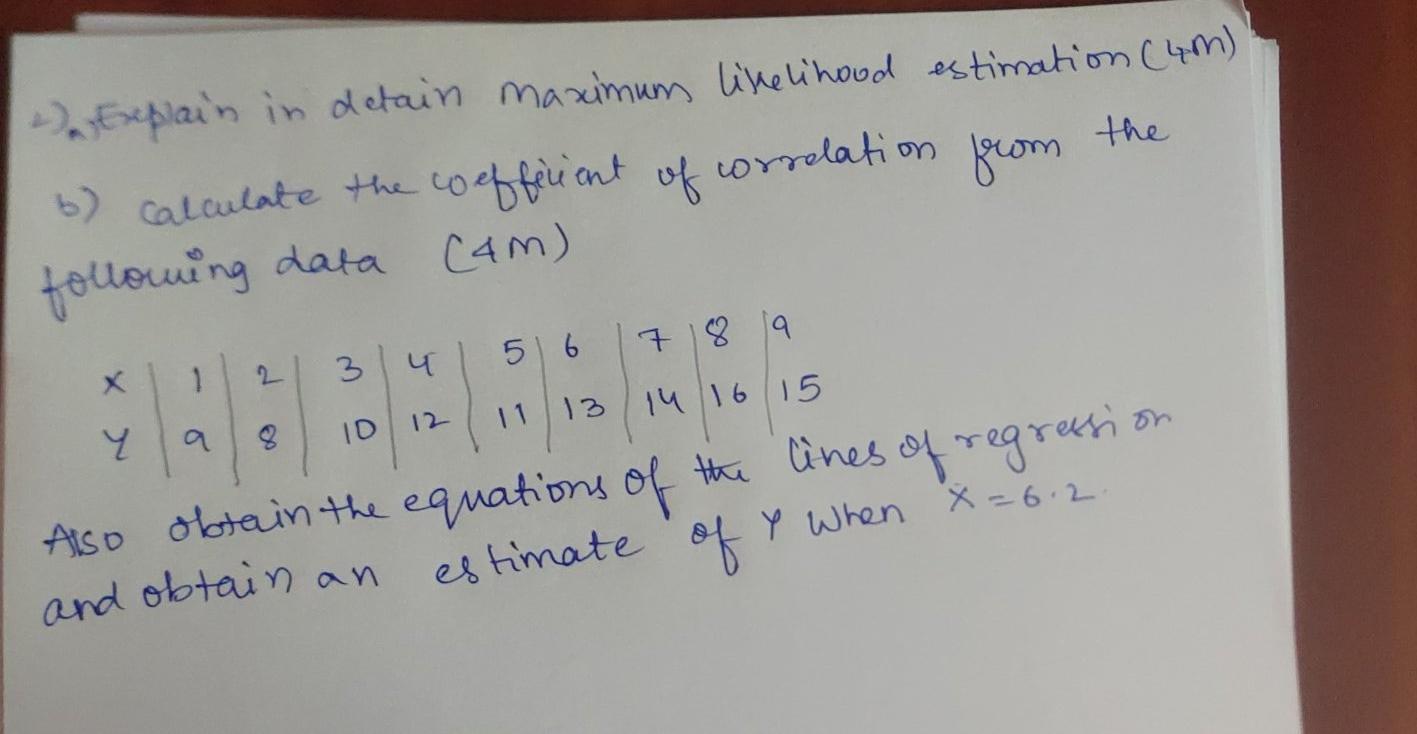 2) a) Explain in detain maximum likelihood estimation (4m)
b) calculate the coefficient of correlation from the
following data (4m)
X | 1 | 2 | 3 | 4 | 5 | 6 | 7 | 8 | 9
Y | 9 | 8 | 10 | 12 | 11 | 13 | 14 | 16 | 15
Also obtain the equations of the lines of regression
and obtain an estimate of Y when X = 6.2.